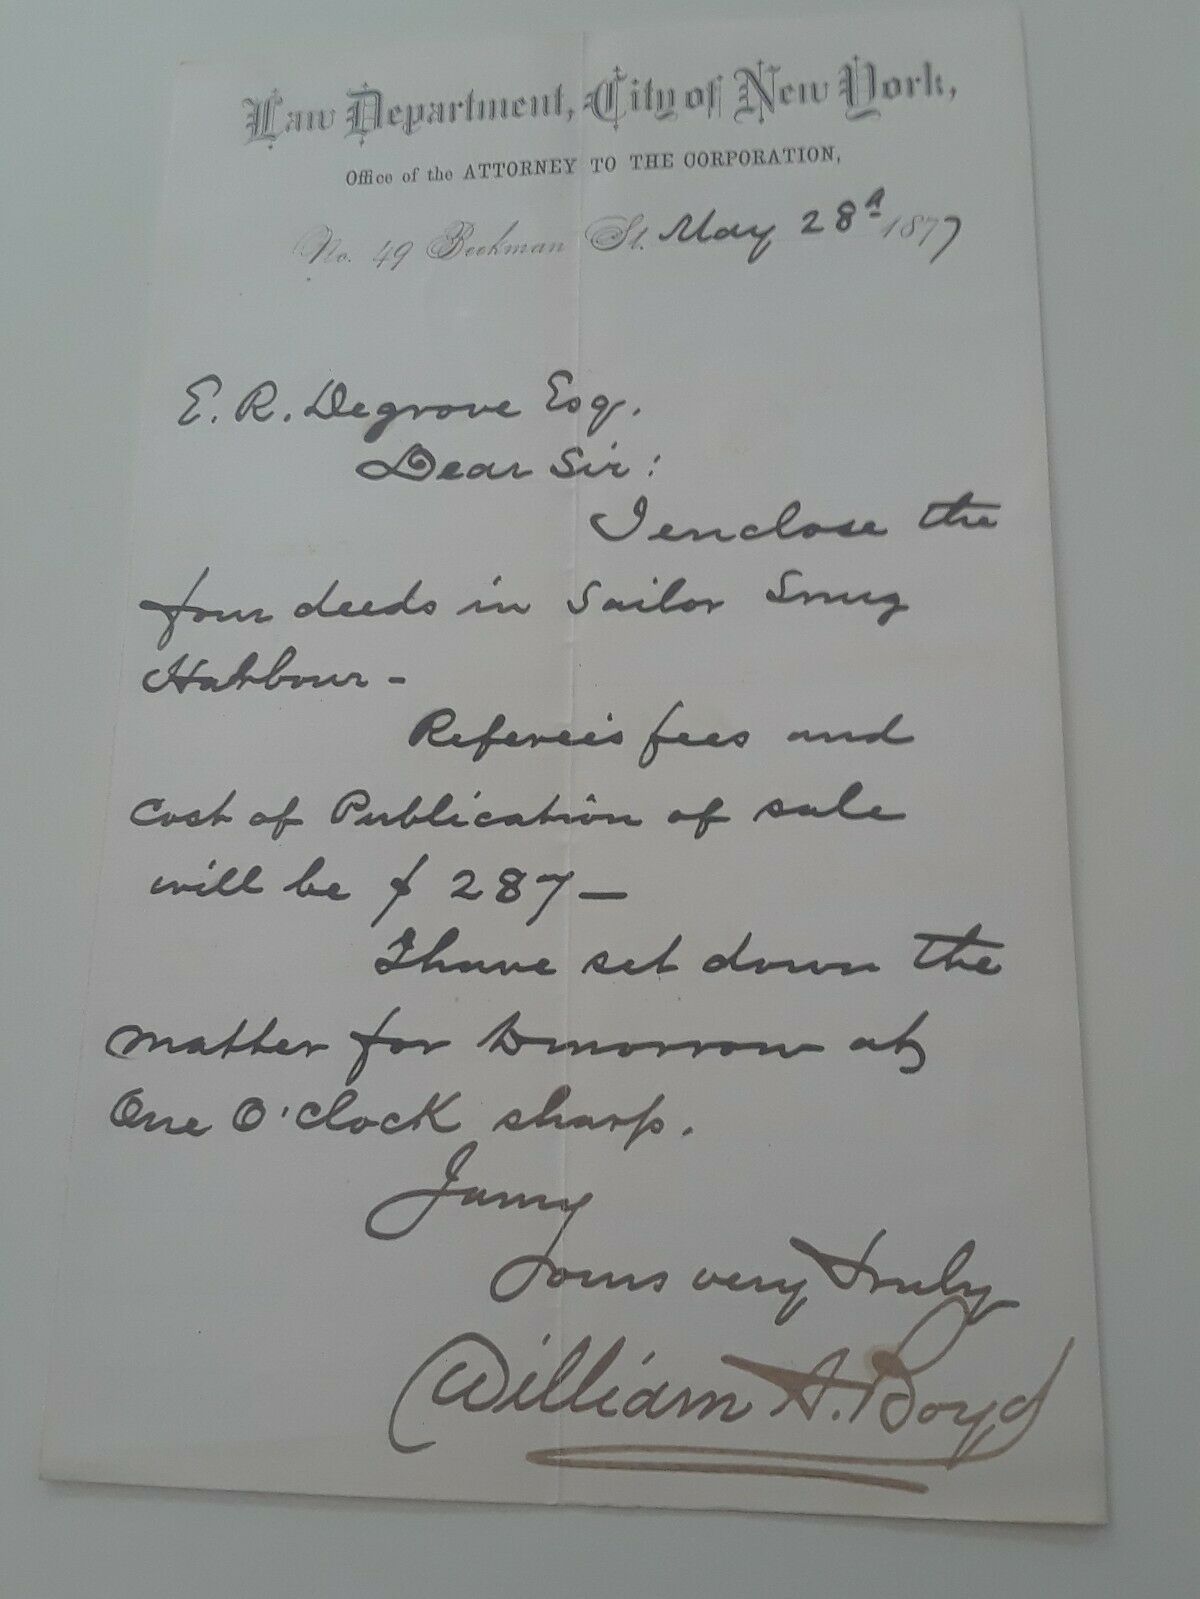 Law Department, City of New York,
Office of the ATTORNEY TO THE CORPORATION,
No. 49 Beekman St. May 28th 1877
E. R. Degrove Esq.
Dear Sir:
I enclose the
four deeds in Sailor Snug
Harbour -
Referee's fees and
cost of Publication of sale
will be $ 287 —
I have set down the
matter for tomorrow at
One O'clock sharp.
I am
Yours very truly
William A. Boyd